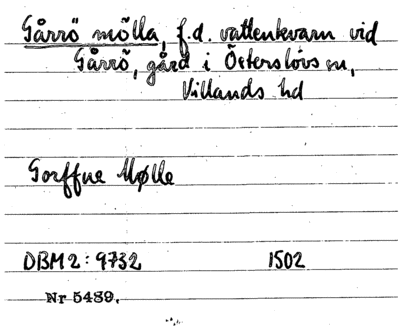 Gårrö mölla, f.d. vattenkvarn vid
Gårrö, gård i Österslövs sn,
Villands hd
Gorffue Mølle
DBM 2: 9732 1502
Nr 5489.